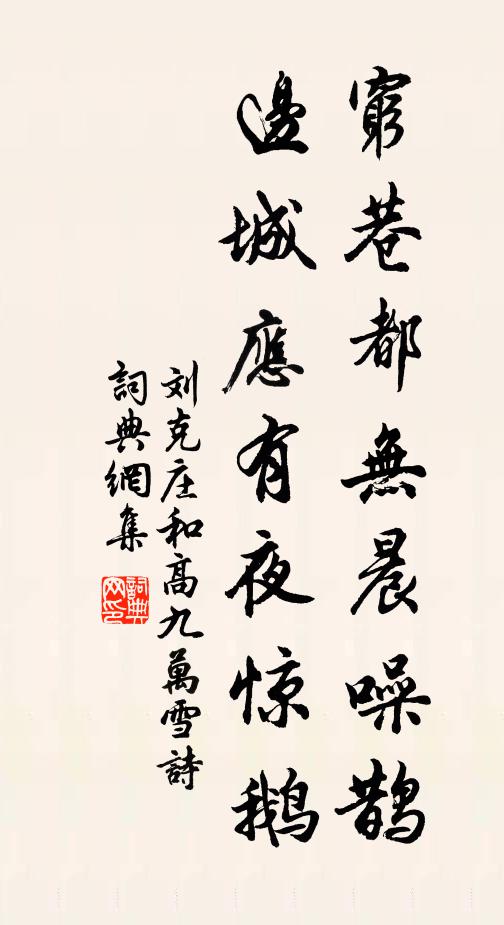 窮巷都無晨噪鹊
邊城應有夜惊鹅
刘克庄和高九萬雪詩
詞典網集
詞典网印